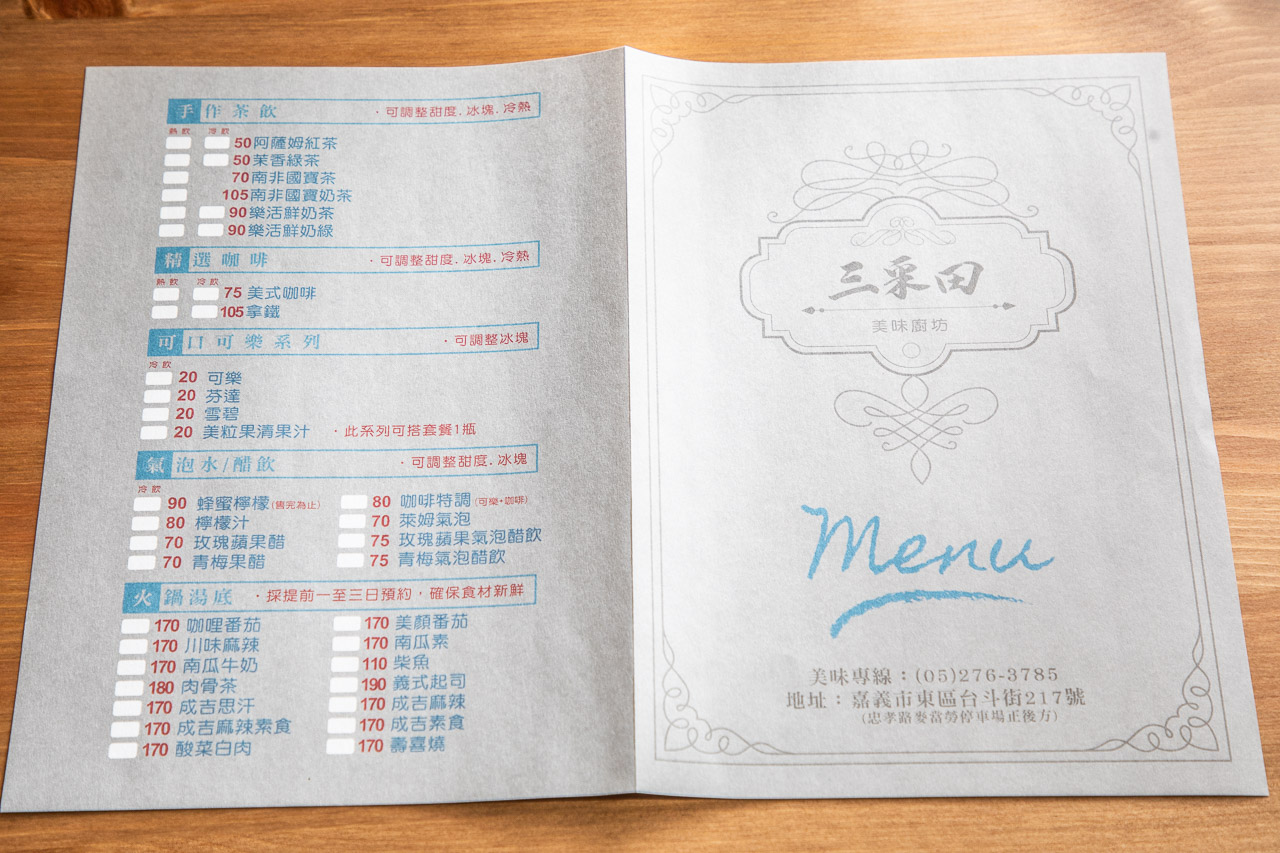 手作茶飲 ・可調整甜度．冰塊．冷熱
熱飲 冷飲
50 阿薩姆紅茶
50 茉香綠茶
70 南非國寶茶
105 南非國寶奶茶
90 樂活鮮奶茶
90 樂活鮮奶綠
精選咖啡 ・可調整甜度．冰塊．冷熱
熱飲 冷飲
75 美式咖啡
105 拿鐵
可口可樂系列 ・可調整冰塊
冷飲
20 可樂
20 芬達
20 雪碧
20 美粒果清果汁 ・此系列可搭套餐1瓶
氣泡水/醋飲 ・可調整甜度．冰塊
冷飲
90 蜂蜜檸檬(售完為止) 80 咖啡特調(可樂+咖啡)
80 檸檬汁 70 萊姆氣泡
70 玫瑰蘋果醋 75 玫瑰蘋果氣泡醋飲
70 青梅果醋 75 青梅氣泡醋飲
火鍋湯底 ・採提前一至三日預約，確保食材新鮮
170 咖哩番茄 170 美顏番茄
170 川味麻辣 170 南瓜素
170 南瓜牛奶 110 柴魚
180 肉骨茶 190 義式起司
170 成吉思汗 170 成吉麻辣
170 成吉麻辣素食 170 成吉素食
170 酸菜白肉 170 壽喜燒
三采田
美味廚坊
Menu
美味專線：(05)276-3785
地址：嘉義市東區台斗街217號
(忠孝路麥當勞停車場正後方)